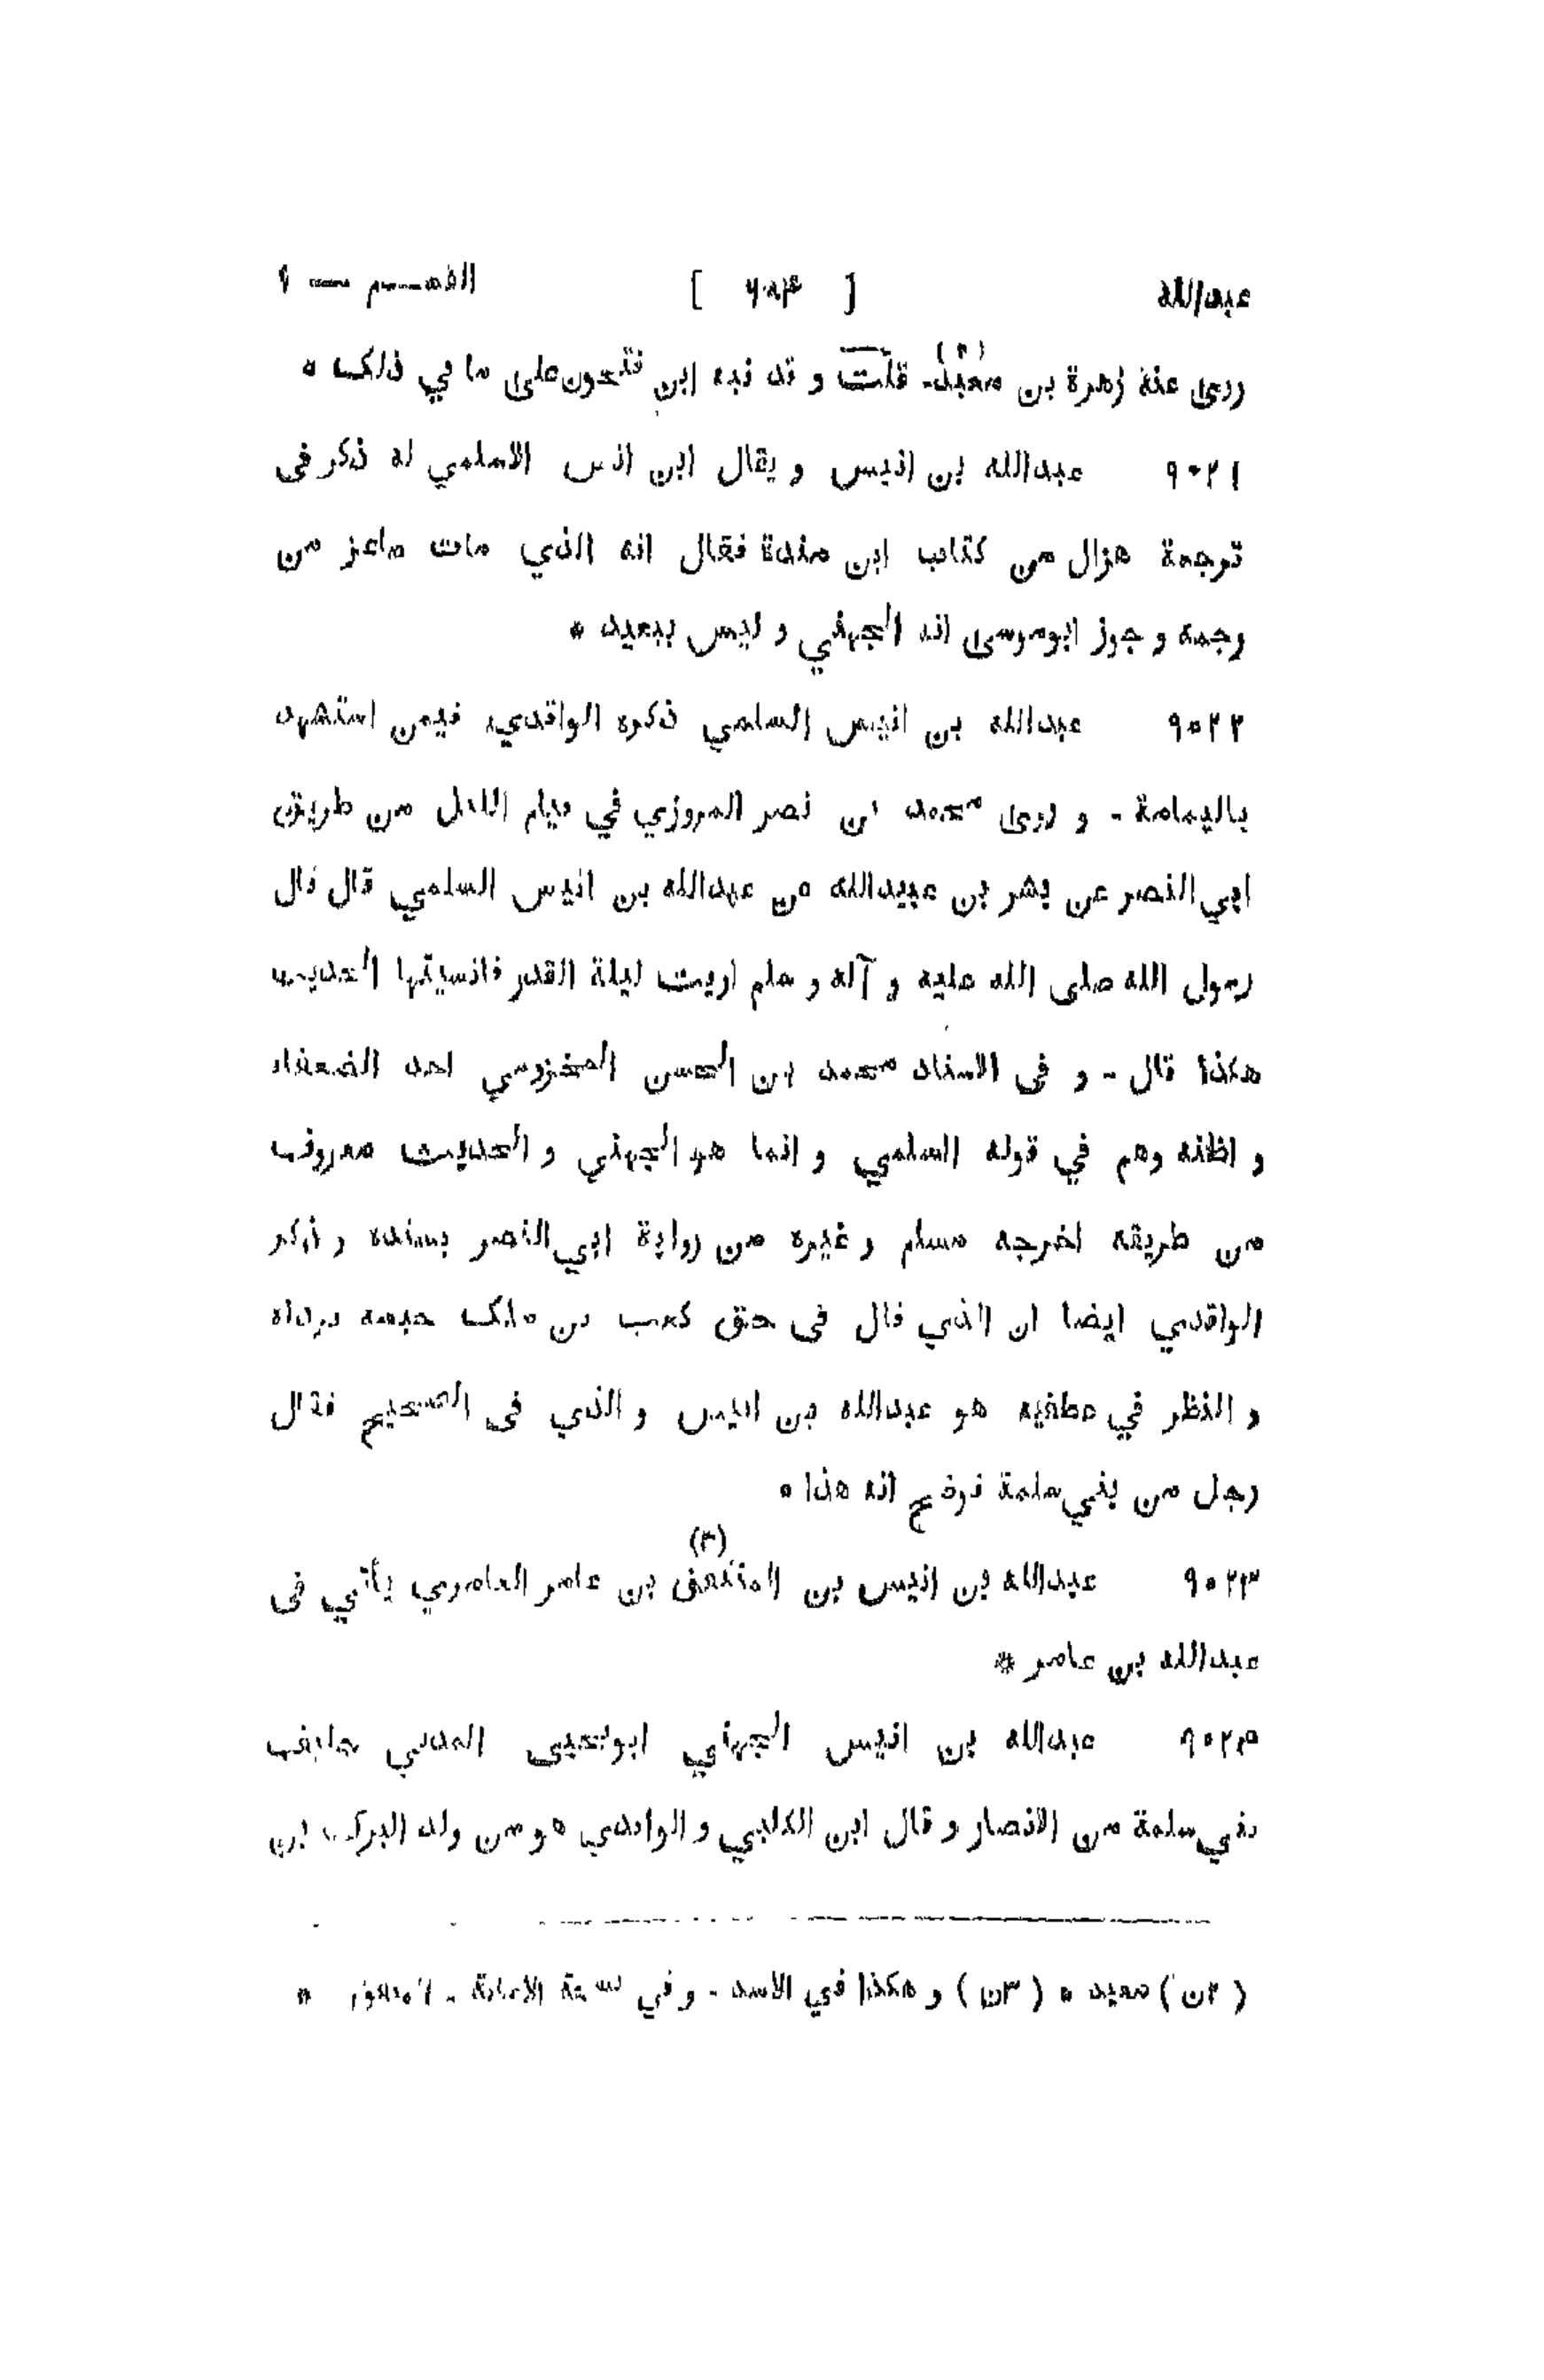 عبدالله [ ٦٨٤ ] القسم — ١
روى عنه زهرة بن معبد(٢) - قلت و قد نبه ابن فتحون على ما في ذلك *
٩٠٢١ عبدالله بن انيس و يقال ابن انس الاسلمي له ذكر فى
ترجمة هزال من كتاب ابن مندة فقال انه الذي مات ماعز من
رجمه و جوز ابوموسى انه الجهني و ليس ببعيد *
٩٠٢٢ عبدالله بن انيس السلمي ذكره الواقدي فيمن استشهد
باليمامة - و روى محمد بن نصر المروزي في قيام الليل من طريق
ابي النصر عن بشر بن عبيدالله عن عبدالله بن انيس السلمي قال قال
رسول الله صلى الله عليه و آله و سلم اريت ليلة القدر فانسيتها الحديث
هكذا قال - و فى الاسناد محمد بن الحسن المخزومي احد الضعفاء
و اظنه وهم في قوله السلمي و انما هو الجهني و الحديث معروف
من طريقه اخرجه مسلم و غيره من رواية ابي النصر بسنده و ذكر
الواقدي ايضا ان الذي قال فى حق كعب بن ملك حبسه برداه
و النظر في عطفيه هو عبدالله بن انيس و الذي فى الصحيح فقال
رجل من بني سلمة فوضح انه هذا *
٩٠٢٣ عبدالله بن انيس بن المنتفق(٣) بن عامر العامري يأتي فى
عبدالله بن عامر *
٩٠٢٤ عبدالله بن انيس الجهني ابويحيى المدني حليف
بني سلمة من الانصار و قال ابن الكلبي و الواقدي هو من ولد البرك بن
( ٢ن ) معيد * ( ٣ن ) و هكذا في الاسد - و في نسخة الاصابة -